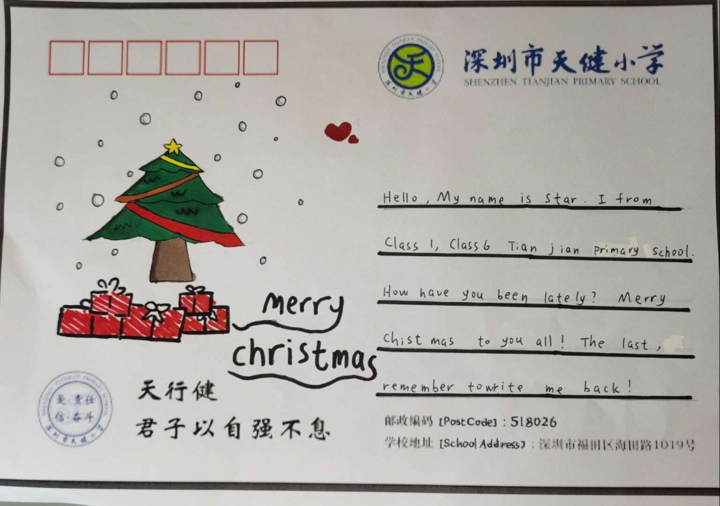 深圳市天健小学
SHENZHEN TIANJIAN PRIMARY SCHOOL
Hello, My name is Star. I from
Class 1, Class 6 Tian jian primary school.
How have you been lately? Merry
Chist mas to you all! The last,
remember towrite me back!
merry
christmas
天行健
君子以自强不息
爱·责任
信·奋斗
邮政编码 [PostCode]: 518026
学校地址 [School Address]: 深圳市福田区海田路1019号